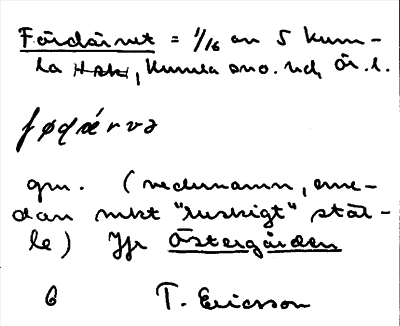 Fördärvet = 1/16 av 5 Kum-
la ~~Hsk~~, Kumla sn o. hd, Ör. l.
fødǽrvə
gm. (nedernamn, eme-
dan mkt "ruskigt" stäl-
le) Jfr Östergården
6 T. Ericsson